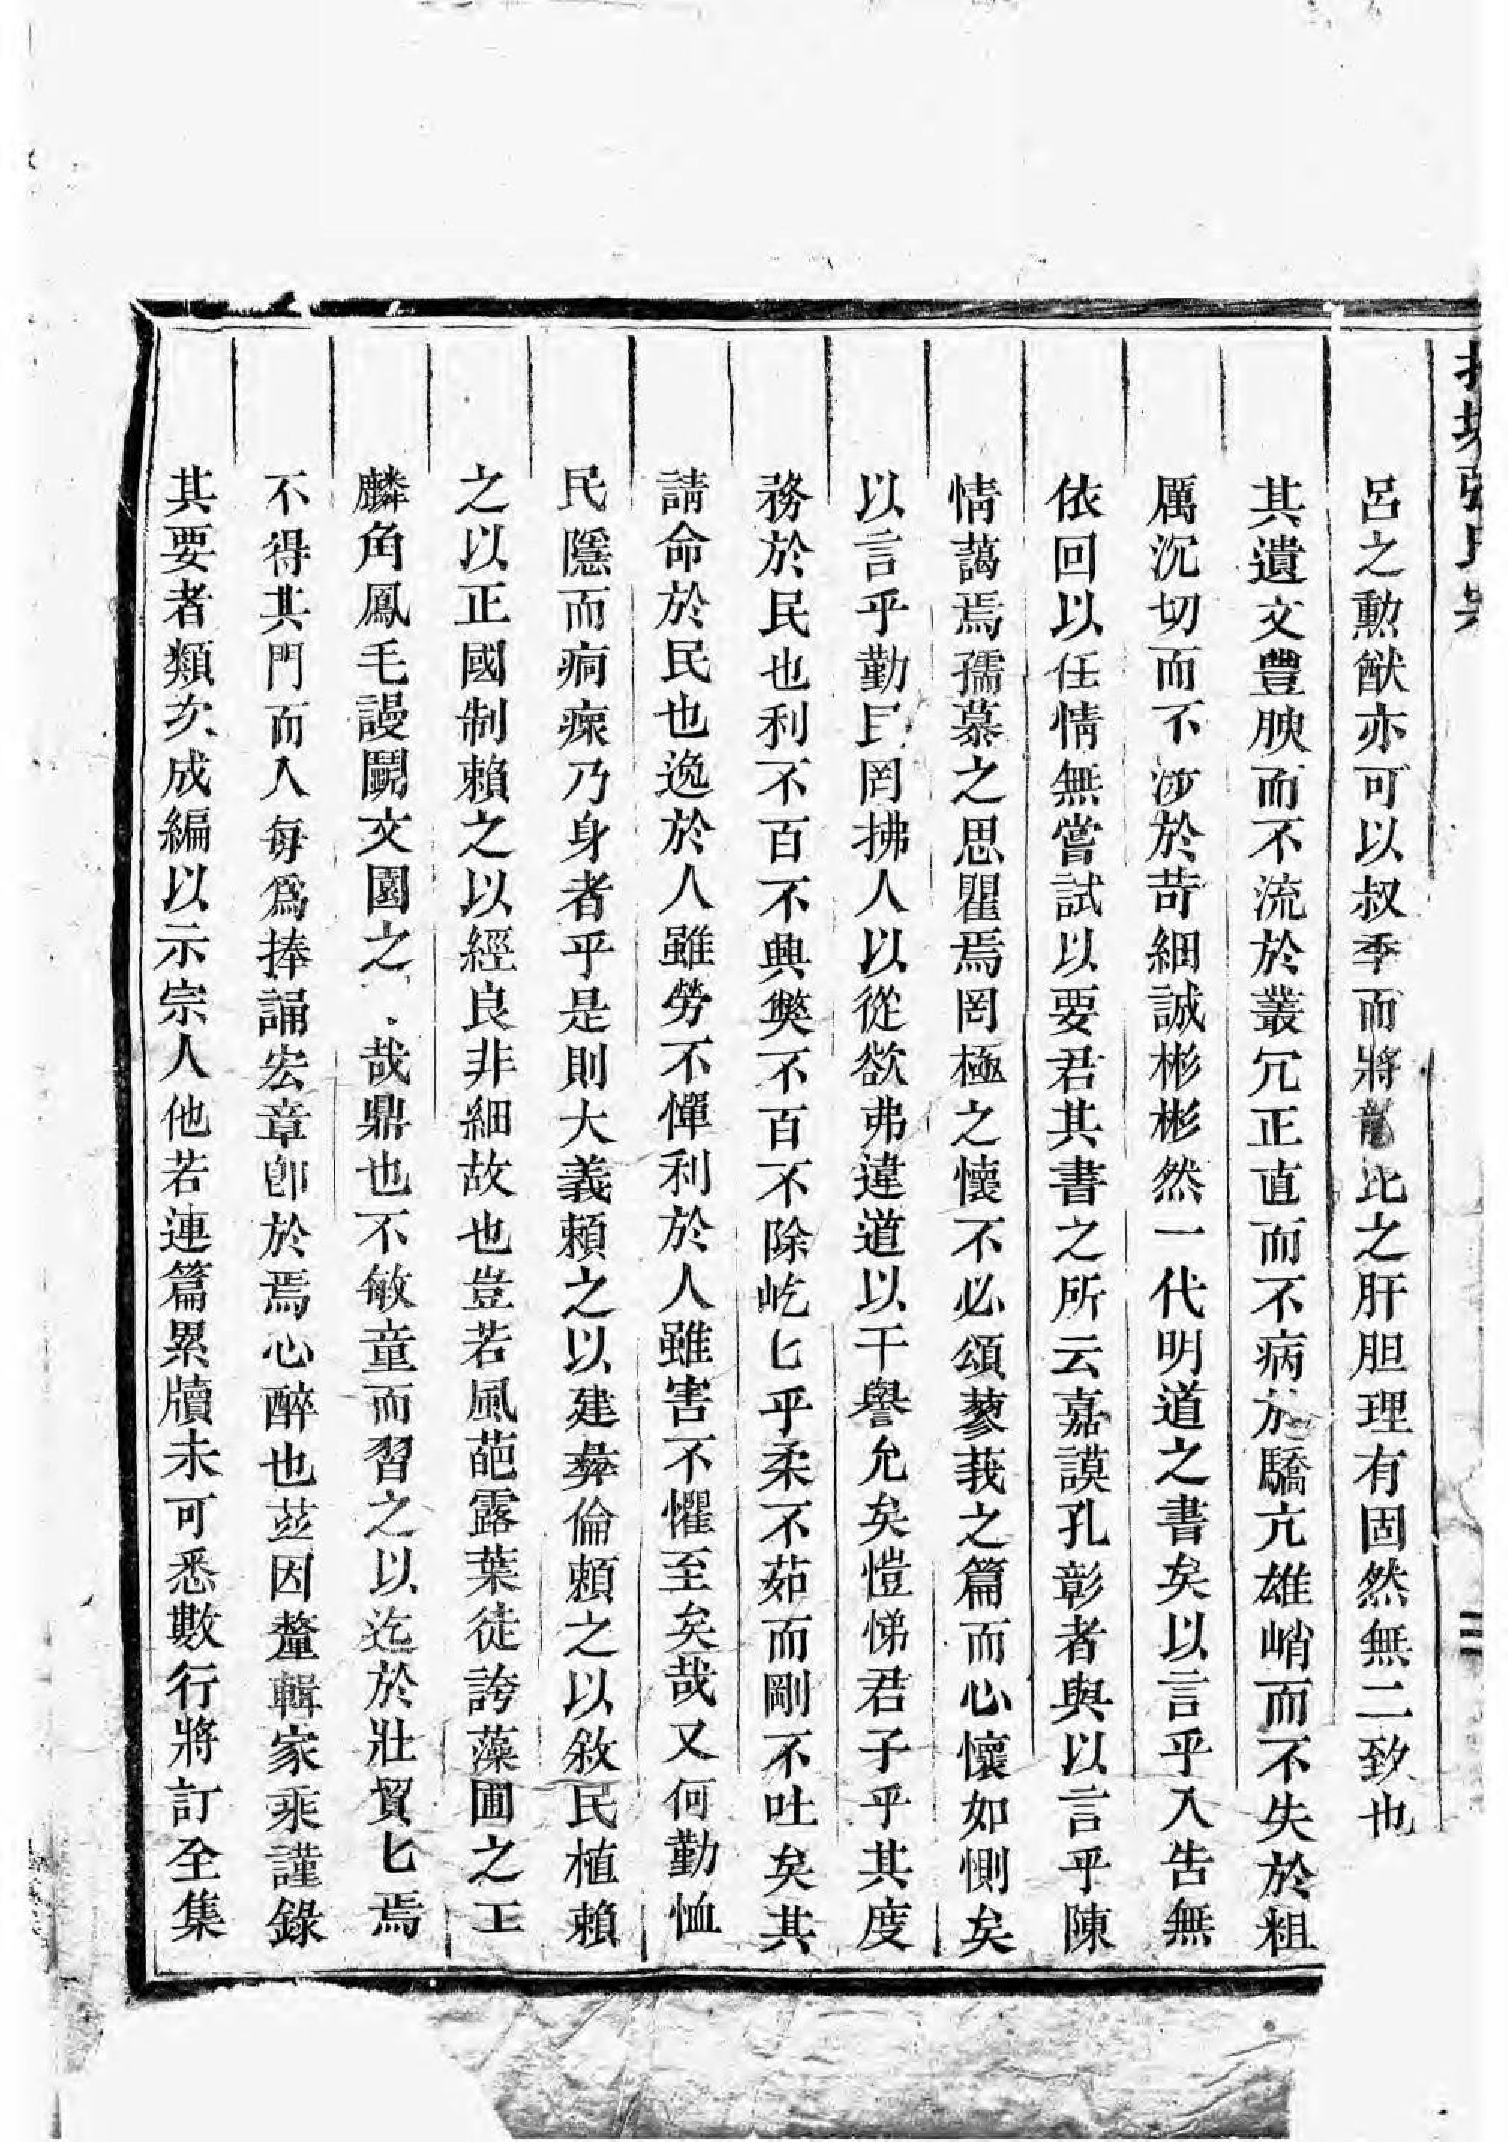 呂之勲猷亦可以叔季而將龍比之肝胆理有固然無二致也
其遺文豐腴而不流於叢冗正直而不病於驕亢雄峭而不失於粗
厲沉切而不涉於苛細誠彬彬然一代明道之書矣以言乎入告無
依回以任情無嘗試以要君其書之所云嘉謨孔彰者與以言乎陳
情藹焉孺慕之思瞿焉罔極之懷不必頌蓼莪之篇而心懷如惻矣
以言乎勤民罔拂人以從欲弗違道以干譽允矣愷悌君子乎其度
務於民也利不百不興獘不百不除屹匕乎柔不茹而剛不吐矣其
請命於民也逸於人雖勞不憚利於人雖害不懼至矣哉又何勤恤
民隱而痌瘝乃身者乎是則大義賴之以建彝倫賴之以敘民植賴
之以正國制賴之以經良非細故也豈若風葩露葉徒誇藻圃之工
麟角鳳毛謾鬭文園之哉鼎也不敏童而習之以迄於壯貿匕焉
不得其門而入每爲捧誦宏章卽於焉心醉也茲因釐輯家乘謹錄
其要者類次成編以示宗人他若連篇累牘未可悉數行將訂全集